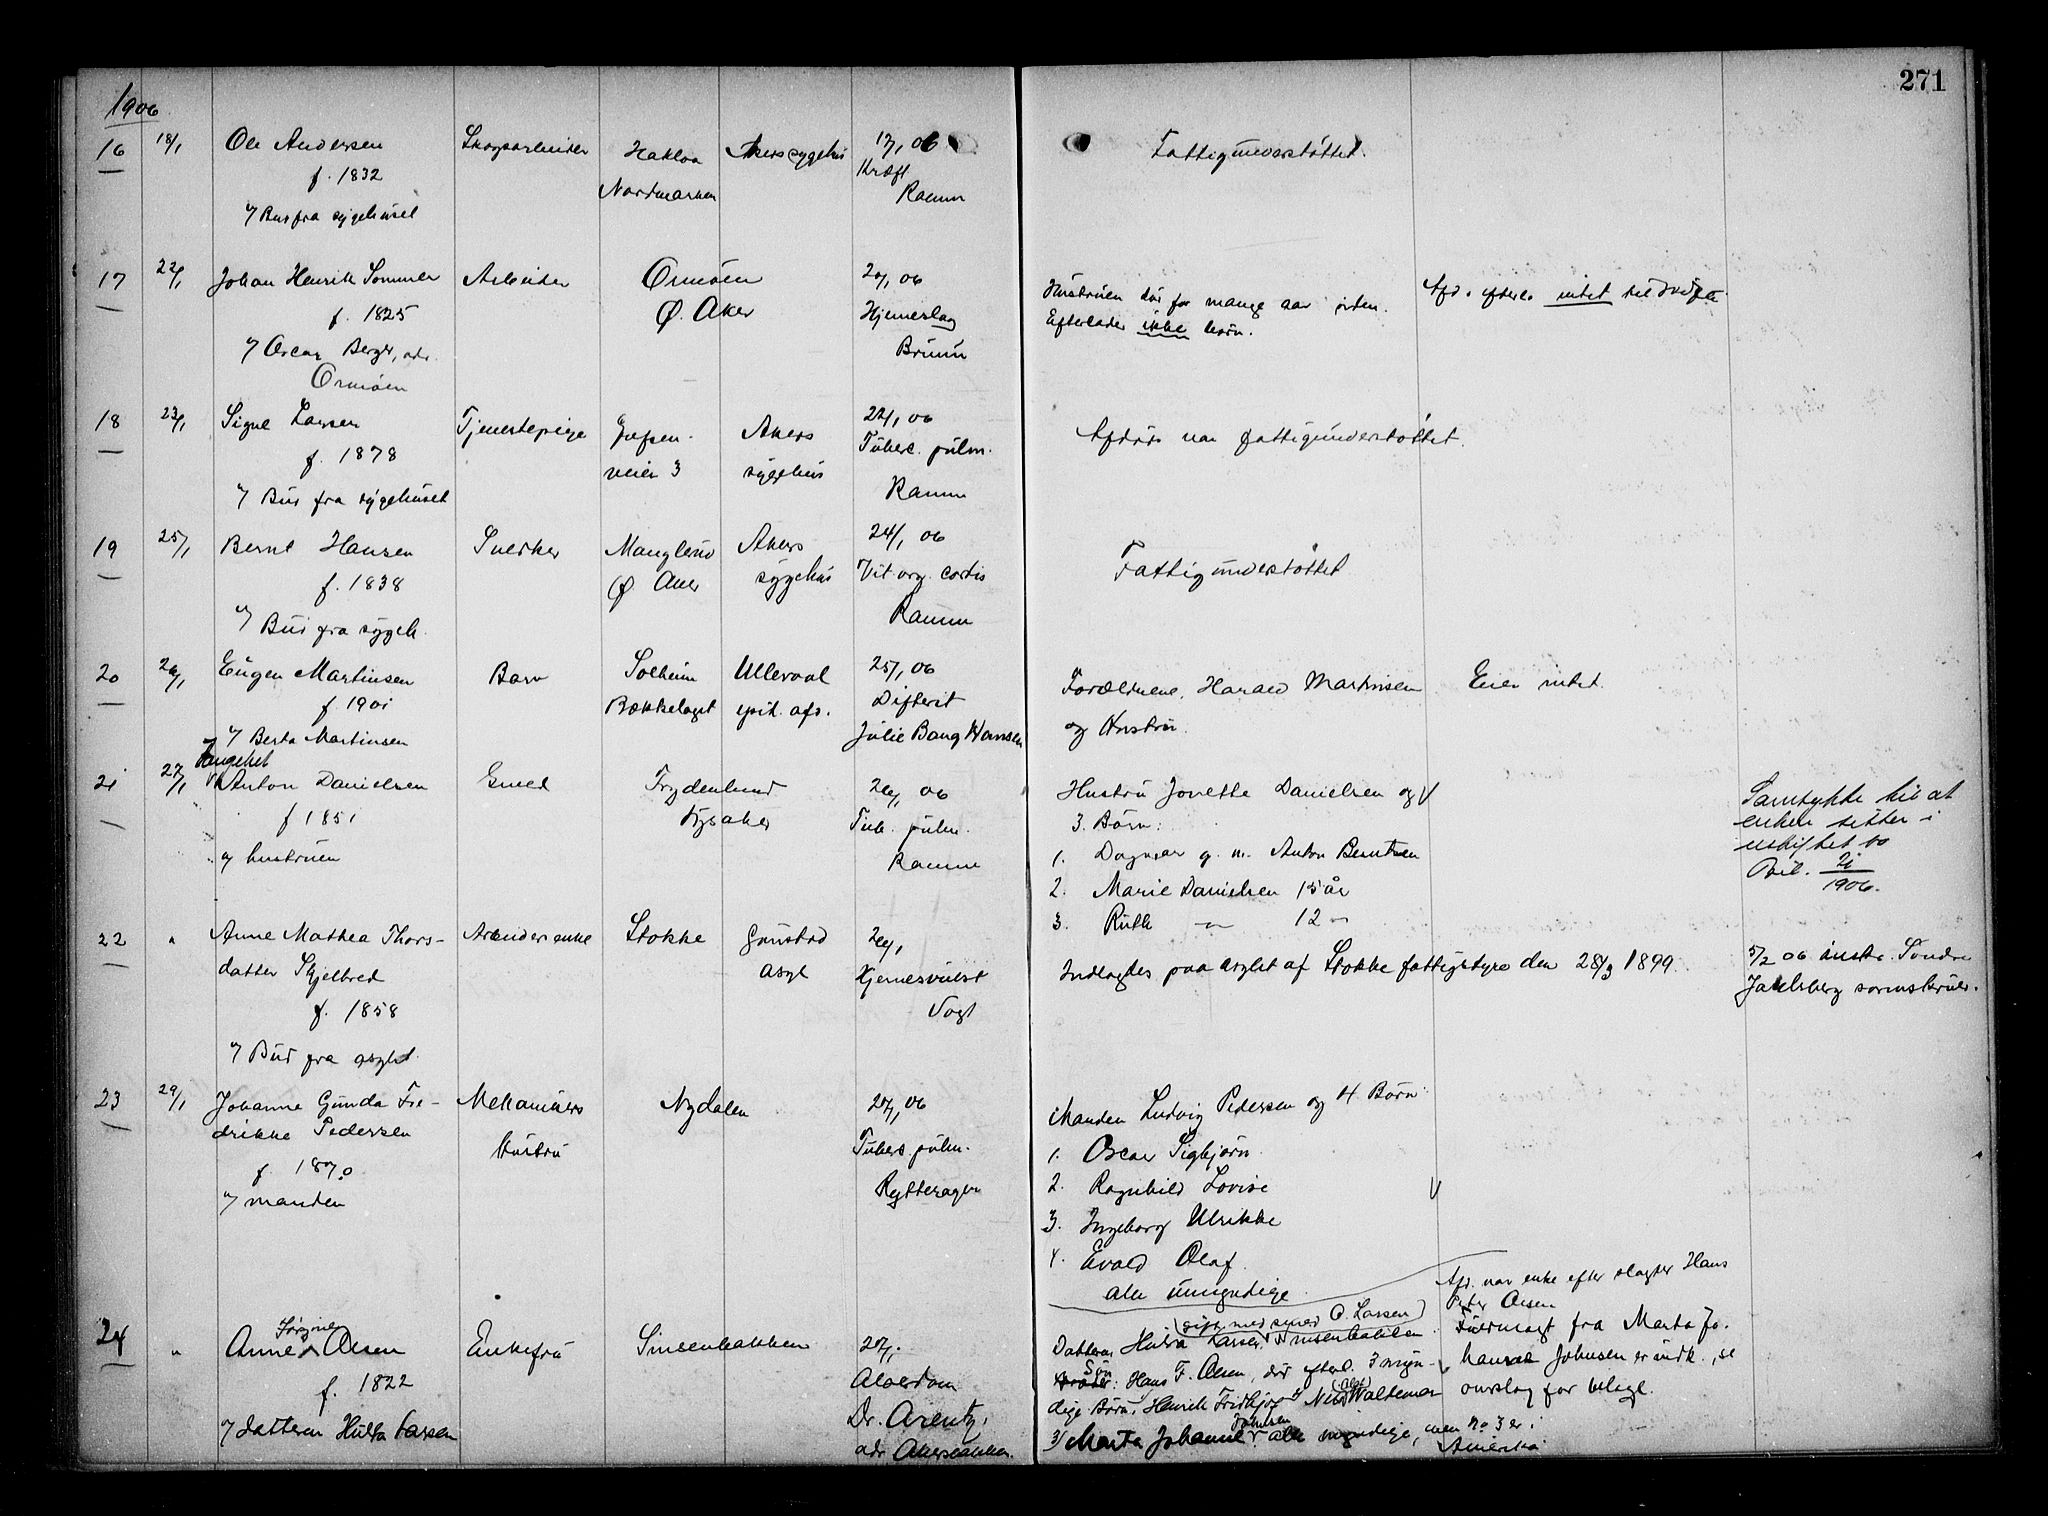 271
1906
16 18/1 Ole Andersen Skogsarbeider Hakloa Akers sygehus 17/1 06 Fattigunderstøttet.
f. 1832 Nordmarken Kræft
v/ Bud fra sygehuset Ramm
17 22/1 Johan Henrik Sommer Arbeider Ormøen 20/1 06 Hustruen død for mange aar siden. Afd. efterl. intet til skifte.
f. 1825 Ø. Aker Hjerneslag Efterlader ikke børn.
v/ Oscar Berger, adr. Bruun
Ormøen
18 23/1 Signe Larsen Tjenestepige veien 3 Akers sygehus 22/1 06 Afdøde var fattigunderstøttet.
f. 1878 Tuberc. pulm.
v/ Bud fra sygehuset Ramm
19 25/1 Bernt Hansen Snedker Manglerud Akers 24/1 06 Fattigunderstøttet
f. 1838 Ø. Aker sygehus Vit. org. cordis
v/ Bud fra sygeh. Ramm
20 26/1 Eugen Martinsen Barn Solheim Ullevaal 25/1 06 Forældrene, Harald Martinsen Eier intet.
f. 1901 Bækkelaget epid. afd. Difterit og Hustru.
v/ Berta Martinsen Julie Bang Hansen
21 27/1 Anton Danielsen Smed Frydenlund 26/1 06 Hustru Jonette Danielsen og Samtykke til at
f 1851 Lysaker Tub. pulm. 3 Børn: enken sitter i
v/ hustruen Ramm 1. Dagmar g. m. Anton Berntsen uskiftet bo
2. Marie Danielsen 15 år Bil. 21/1906.
3. Ruth — 12 —
22 " Anne Mathea Thors- Arbeiderenke Stokke Gaustad 26/1 Indlagdes paa asylet af Stokke fattigstyre den 28/3 1899. 5/2 06 Søndre
datter Skjelbred asyl Hjernesvulst Jarlsberg sorenskriver.
f. 1858 Vogt
v/ Bud fra asylet.
23 29/1 Johanne Gunda Fre- Mekanikers Nydalen 27/1 06 Manden Ludvig Pedersen og 4 Børn:
drikke Pedersen hustru Tuberc. pulm. 1. Oscar Sigbjørn.
f. 1870 Rytterager 2. Ragnhild Lovise
v/ manden 3. Ingeborg Ulrikke
4. Evald Olaf.
alle umyndige.
24 " Anne Jørgine Olsen Enkefru Sinsenbakken 27/1 Afd. var enke efter slagter Hans
f. 1822 Alderdom Peter Olsen
v/ datteren Hulda Larsen Dr. Arentz, Fuldmagt fra Marta Jo-
adr Akersbakken. hanne Johnsen er indk., se
omslag for bilag.
(gift med smed O. Larsen)
Datteren Hulda Larsen, Sinsenbakken.
Søn: Hans F. Olsen, død, efterl. 3 myn-
dige Børn, Henrik Fridtjof Nils (Olaf) Waldemar
3/ Marta Johanne Johnsen alle myndige, men no 3 er i
Amerika